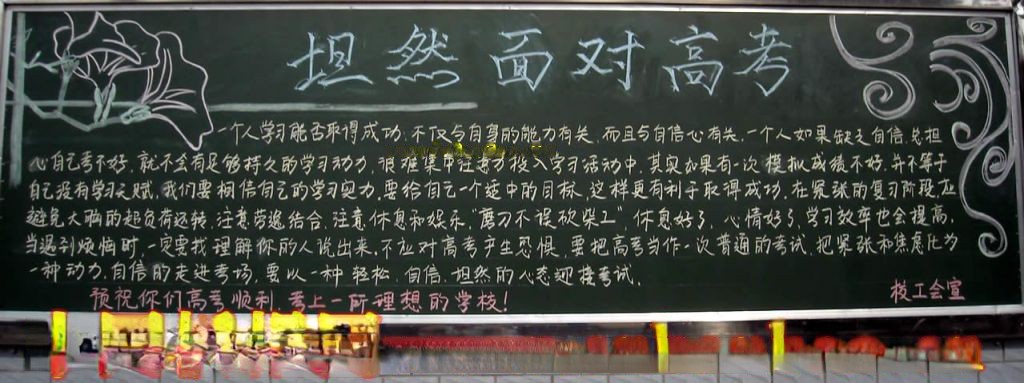 坦然面对高考
一个人学习能否取得成功,不仅与自身的能力有关,而且与自信心有关,一个人如果缺乏自信,总担
心自己考不好,就不会有足够持久的学习动力,很难集中注意力投入学习活动中,其实如果有一次模拟成绩不好,并不等于
自己没有学习天赋,我们要相信自己的学习实力,要给自己一个适中的目标,这样更有利于取得成功,在紧张的复习阶段,应
避免大脑的超负荷运转,注意劳逸结合,注意休息和娱乐,“磨刀不误砍柴工”休息好了,心情好了,学习效率也会提高,
当遇到烦恼时,一定要找理解你的人说出来,不应对高考产生恐惧,要把高考当作一次普通的考试,把紧张和焦虑化为
一种动力,自信的走进考场,要以一种轻松、自信、坦然的心态迎接考试.
预祝你们高考顺利,考上一所理想的学校!
校工会宣